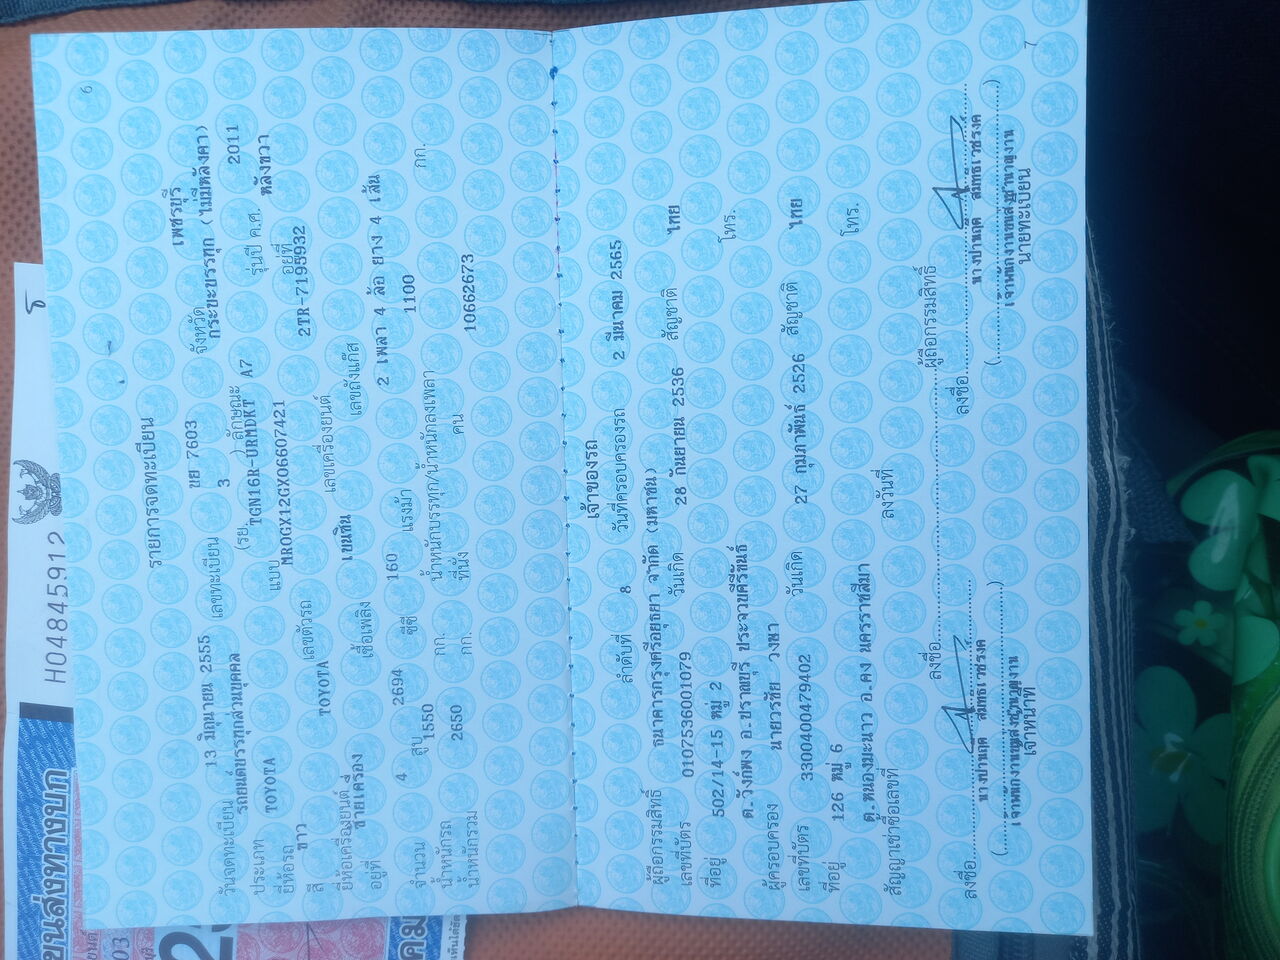 6
รายการจดทะเบียน
วันจดทะเบียน 13 มิถุนายน 2555 เลขทะเบียน ขย 7603 จังหวัด เพชรบุรี
ประเภท รถยนต์บรรทุกส่วนบุคคล (รย. 3 ) ลักษณะ กระบะบรรทุก (ไม่มีหลังคา)
ยี่ห้อรถ TOYOTA แบบ TGN16R-URMDKT A7 รุ่นปี ค.ศ. 2011
สี ขาว เลขตัวรถ MR0GX12GX06607421 อยู่ที่ หลังขวา
ยี่ห้อเครื่องยนต์ TOYOTA เลขเครื่องยนต์ 2TR-7195932
อยู่ที่ ซ้ายเครื่อง เชื้อเพลิง เบนซิน เลขถังแก๊ส
จำนวน 4 สูบ 2694 ซีซี 160 แรงม้า 2 เพลา 4 ล้อ ยาง 4 เส้น
น้ำหนักรถ 1550 กก. น้ำหนักบรรทุก/น้ำหนักลงเพลา 1100 กก.
น้ำหนักรวม 2650 กก. ที่นั่ง คน 10662673
เจ้าของรถ
ลำดับที่ 8 วันที่ครอบครองรถ 2 มีนาคม 2565
ผู้ถือกรรมสิทธิ์ ธนาคารกรุงศรีอยุธยา จำกัด (มหาชน)
เลขที่บัตร 0107536001079 วันเกิด 28 กันยายน 2536 สัญชาติ ไทย
ที่อยู่ 502/14-15 หมู่ 2 โทร.
ต.วังก์พง อ.ปราณบุรี ประจวบคีรีขันธ์
ผู้ครอบครอง นายวรชัย วงษา
เลขที่บัตร 3300400479402 วันเกิด 27 กุมภาพันธ์ 2526 สัญชาติ ไทย
ที่อยู่ 126 หมู่ 6 โทร.
ต.หนองมะนาว อ.คง นครราชสีมา
สัญญาเช่าซื้อเลขที่ ลงวันที่
ลงชื่อ ผู้ถือกรรมสิทธิ์
ลงชื่อ ลงชื่อ
เจ้าหน้าที่ นายทะเบียน
7
H04845912
ขนส่งทางบก